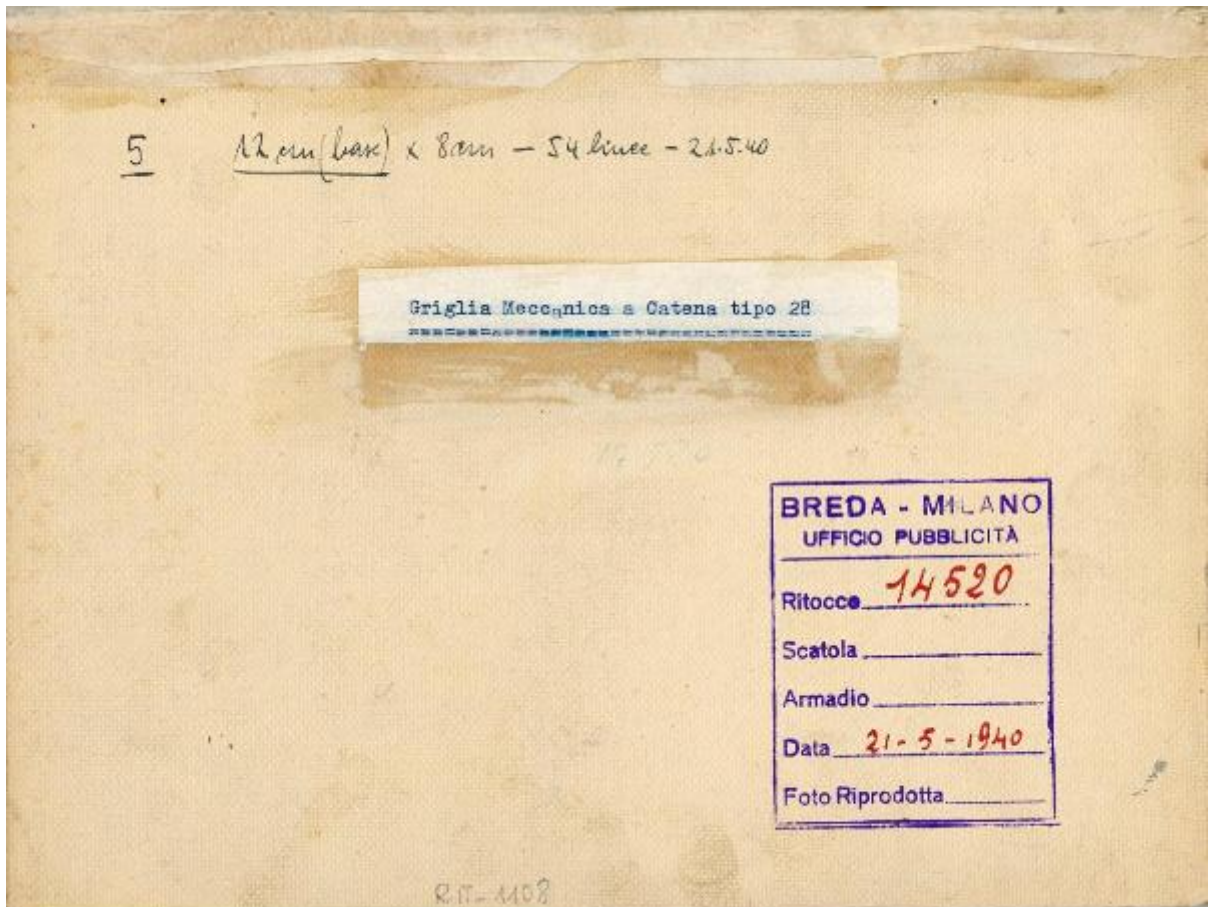 5 12 cm (base) x 8 cm — 54 linee - 21.5.40
Griglia Meccanica a Catena tipo 28
BREDA - MILANO
UFFICIO PUBBLICITÀ
Ritocco 14520
Scatola
Armadio
Data 21-5-1940
Foto Riprodotta
1108